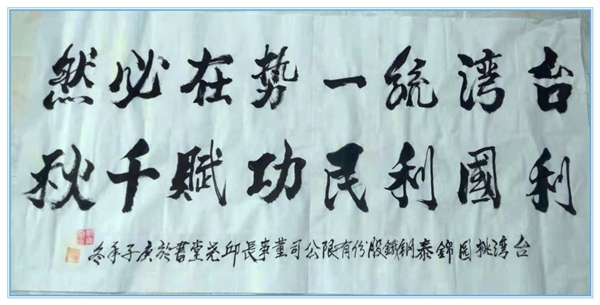 台湾统一势在必然
利國利民功賦千秋
台湾桃园錦泰钢鐵股份有限公司董事長邱尧堂書於庚子年冬